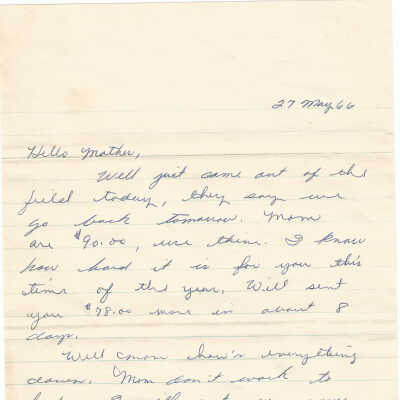 27 May 66
Hello Mother,
Well just came out of the
field today, they say we
go back tomorrow. Mom
are $90.00, use them. I know
how hard it is for you this
time of the year. Will sent
you $78.00 more in about 8
days.
Well mom how's everything
down. Mom don't work to